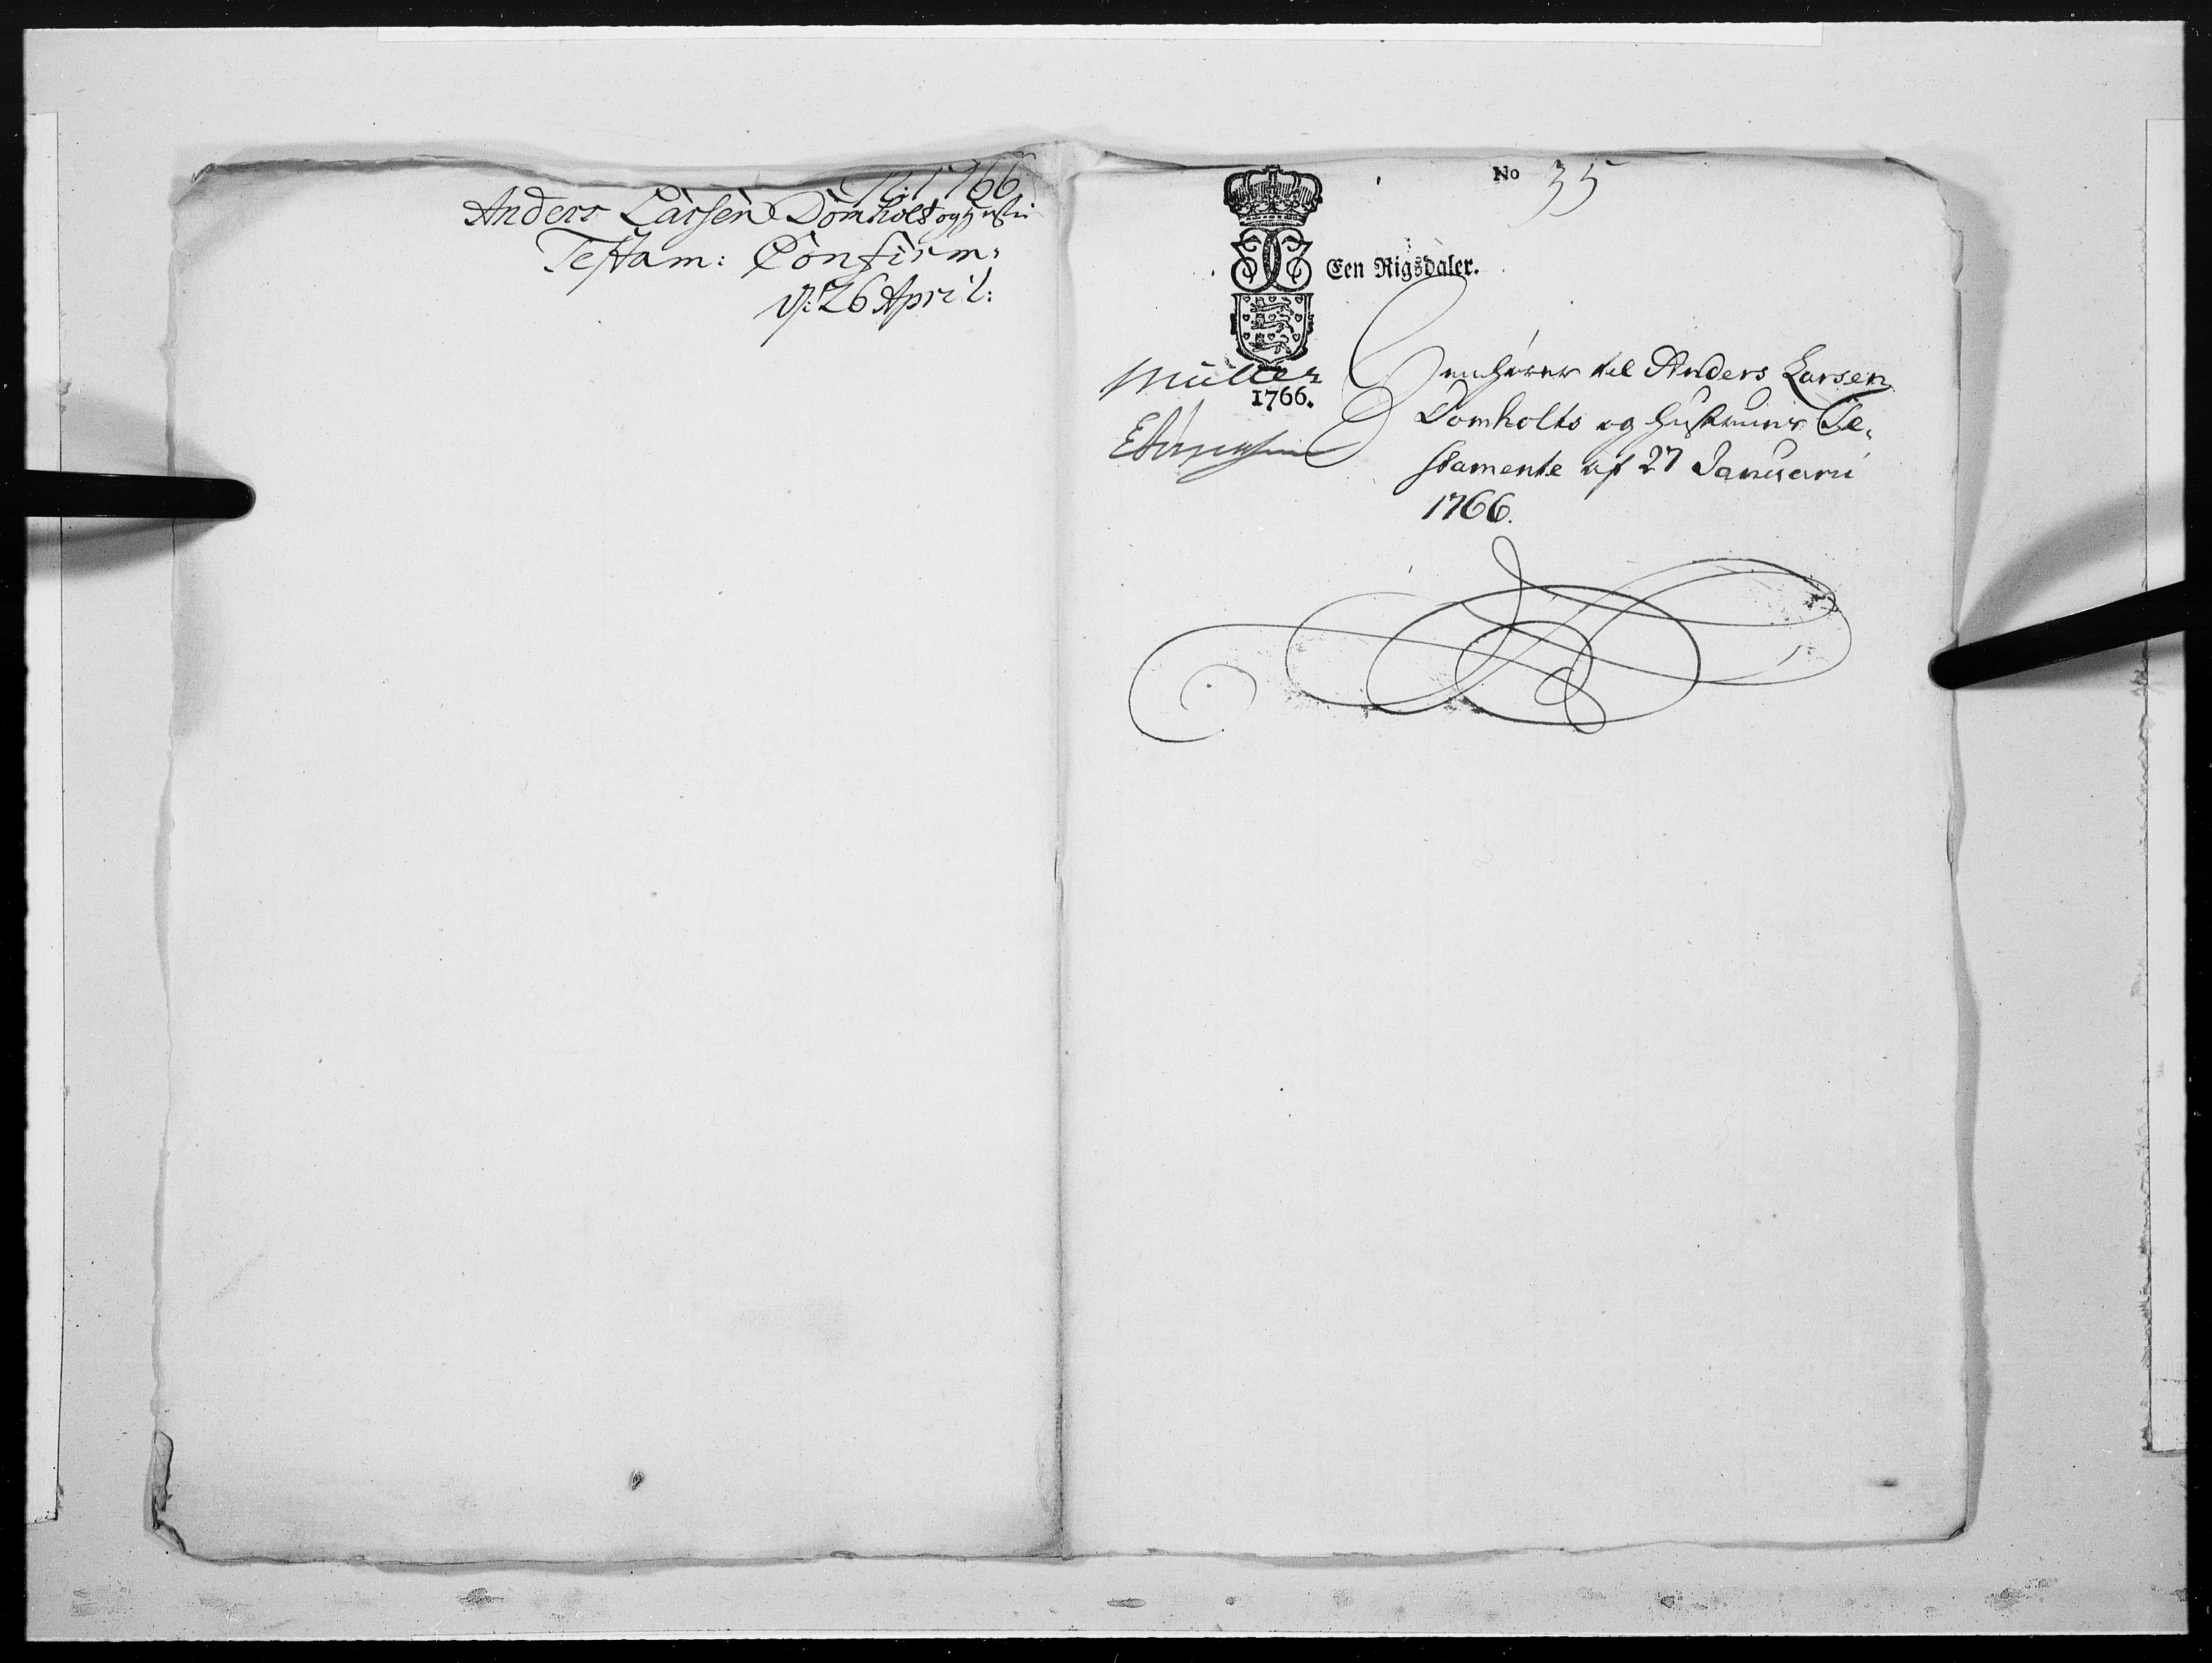 1766
Anders Larsen Domholt og Hustru
Testam: Confirm:
d: 26 April:
No 35
Een Rigsdaler.
Henhører til Anders Larsen
Müller
1766.
Domholts og Hustrues Te-
stamente af 27 Januarii
1766.